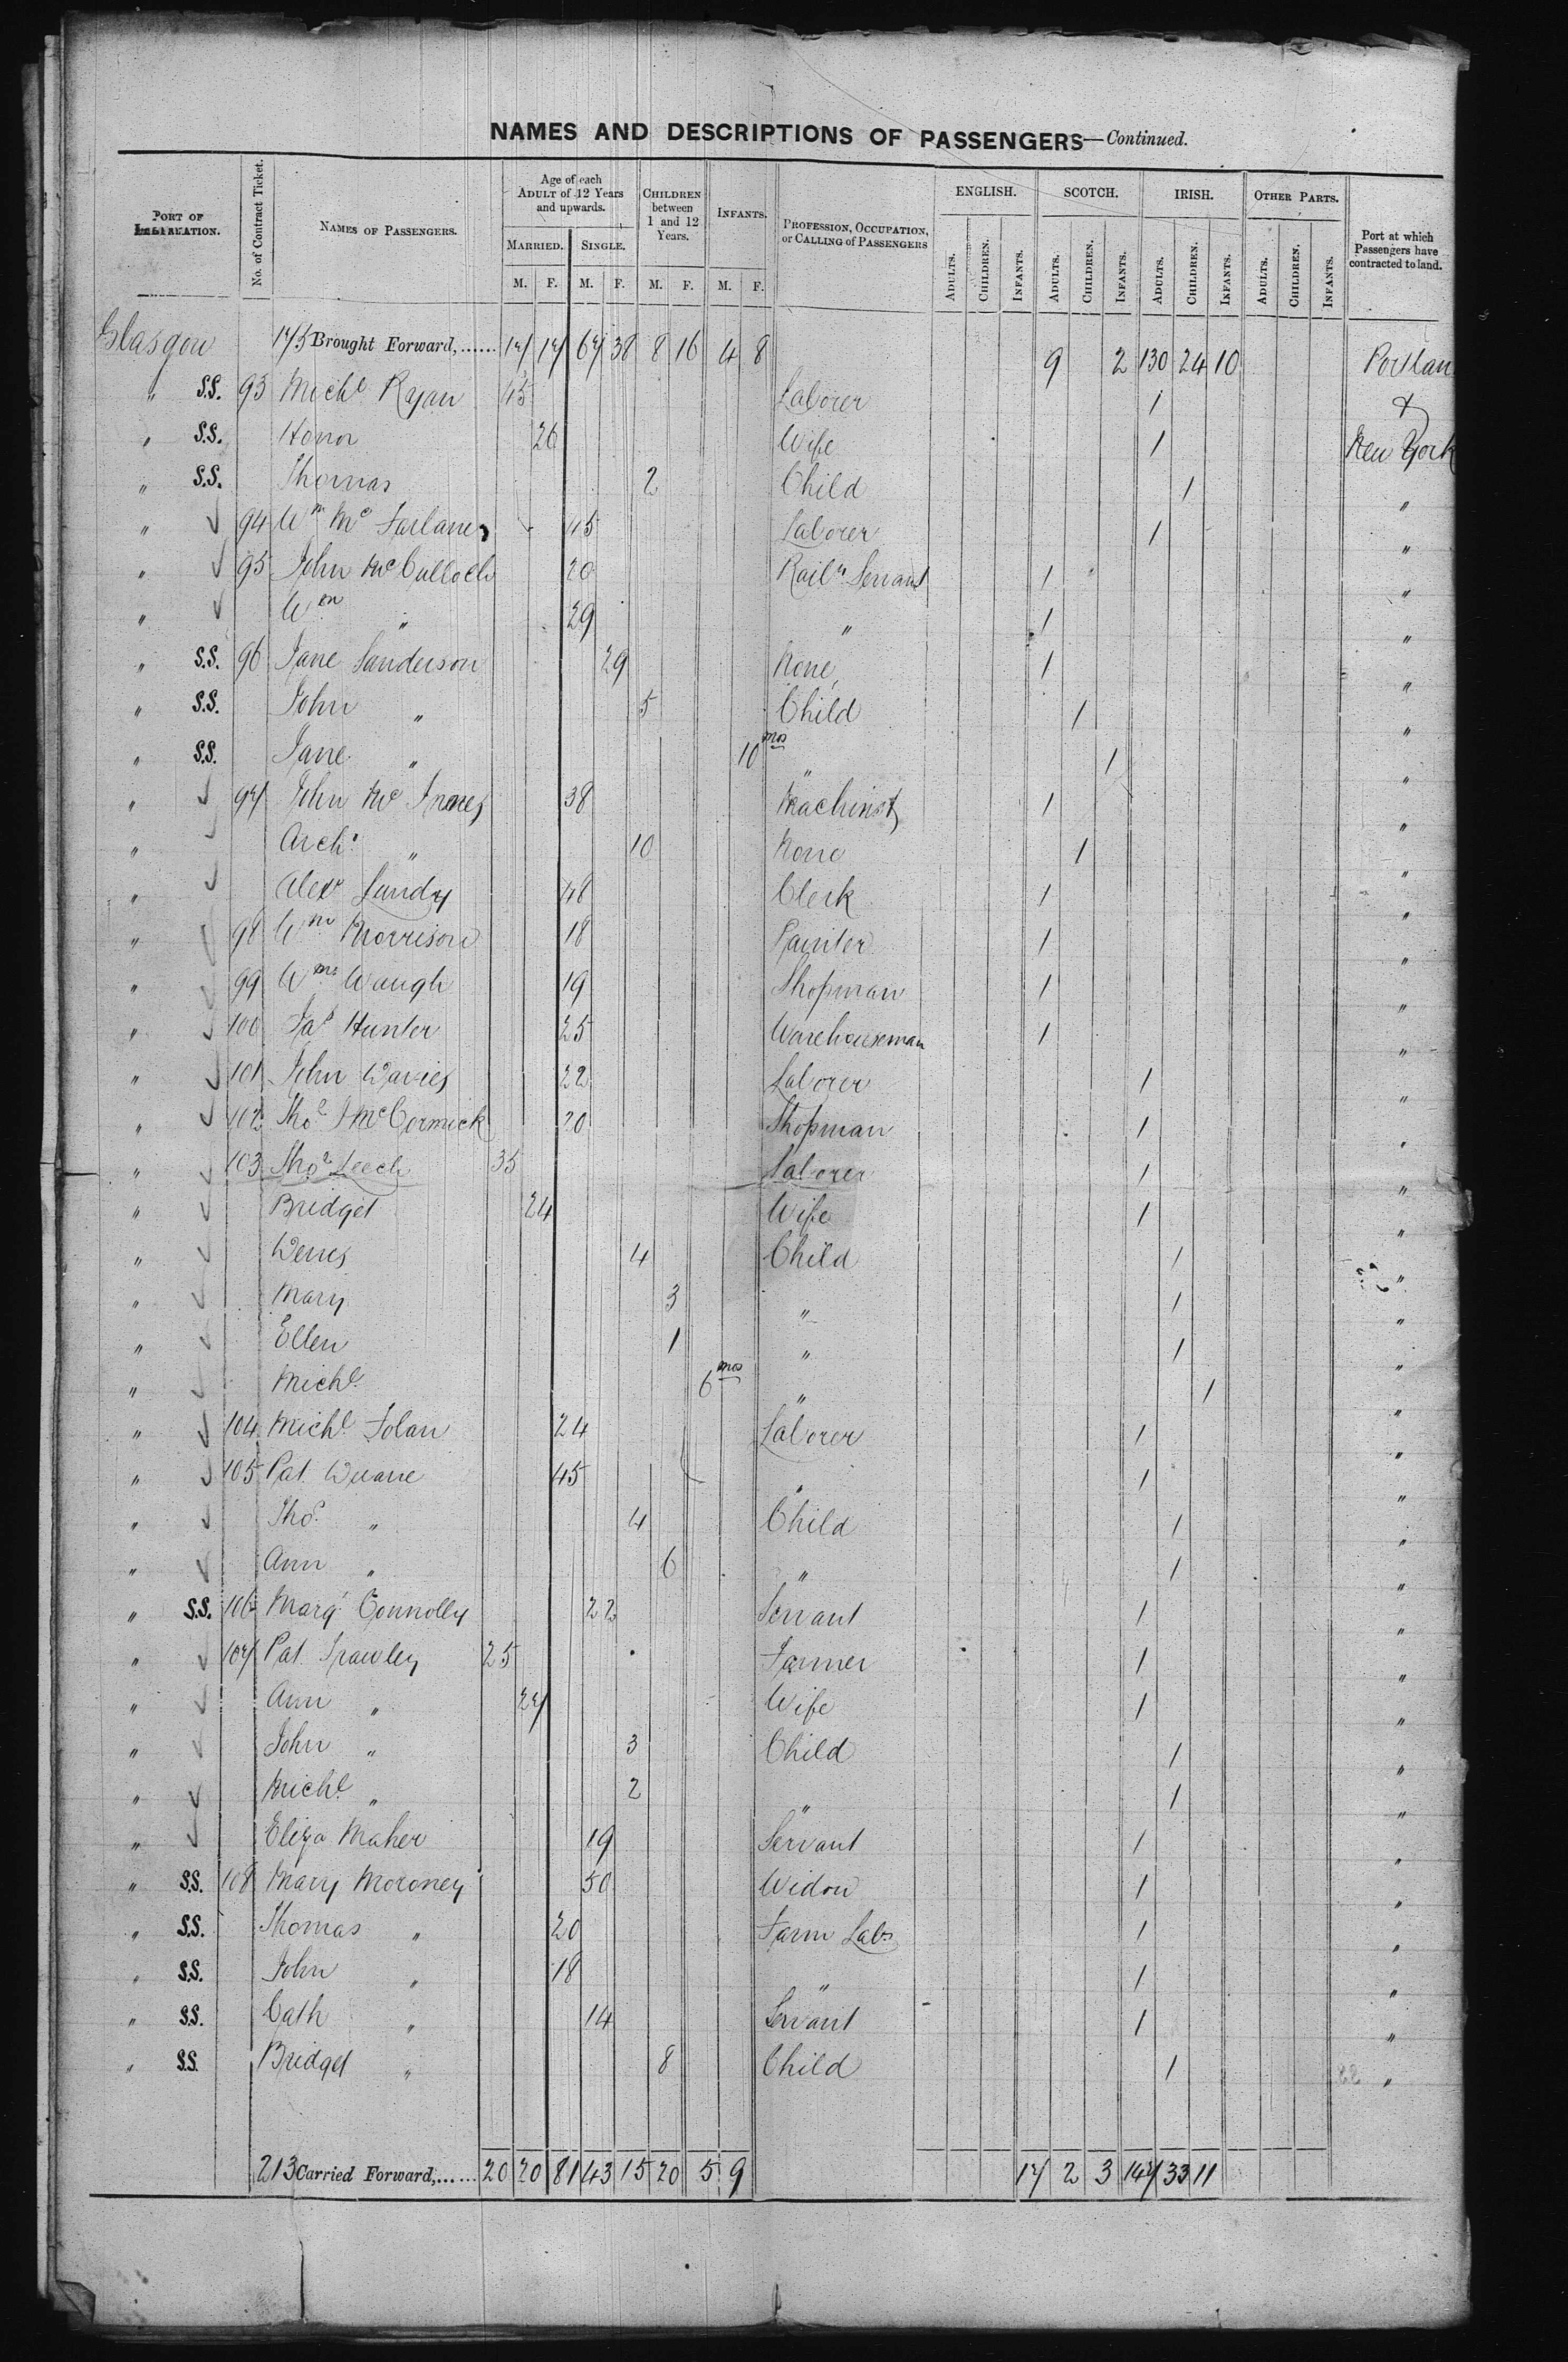 NAMES AND DESCRIPTIONS OF PASSENGERS—Continued.
PORT OF EMBARKATION. No. of Contract Ticket. NAMES OF PASSENGERS. Age of each ADULT of 12 Years and upwards. CHILDREN between 1 and 12 Years. INFANTS. PROFESSION, OCCUPATION, or CALLING of PASSENGERS ENGLISH. SCOTCH. IRISH. OTHER PARTS. Port at which Passengers have contracted to land.
MARRIED. SINGLE.
M. F. M. F. M. F. M. F. ADULTS. CHILDREN. INFANTS. ADULTS. CHILDREN. INFANTS. ADULTS. CHILDREN. INFANTS. ADULTS. CHILDREN. INFANTS.
Glasgow 175 Brought Forward,...... 17 17 67 38 8 16 4 8 9 2 130 24 10 Portlan
" S.S. 93 Michl Ryan 45 Laborer 1 &
" S.S. Honor 26 Wife 1 New York
" S.S. Thomas 2 Child 1 "
" 94 Wm McFarlane 45 Laborer 1 "
" 95 John McCulloch 20 Railw Servant 1 "
" Wm " 29 " 1 "
" S.S. 96 Jane Sanderson 29 None 1 "
" S.S. John " 5 Child 1 "
" S.S. Jane " 10 mos " 1 "
" 97 John McInnes 38 Machinist 1 "
" Archd " 10 None 1 "
" Alexr Lundy 48 Clerk 1 "
" 98 Wm Morrison 18 Painter 1 "
" 99 Wm Waugh 19 Shopman 1 "
" 100 Jas Hunter 25 Warehouseman 1 "
" 101 John Davies 22 Laborer 1 "
" 102 Thos J McCormick 20 Shopman 1 "
" 103 Thos Leech 35 Laborer 1 "
" Bridget 24 Wife 1 "
" Denis 4 Child 1 "
" Mary 3 " 1 "
" Ellen 1 " 1 "
" Michl 6 mos " 1 "
" 104 Michl Folan 24 Laborer 1 "
" 105 Pat Duane 45 " 1 "
" Thos " 4 Child 1 "
" Ann " 6 " 1 "
" S.S. 106 Margt Connolly 22 Servant 1 "
" 107 Pat Frawley 25 Farmer 1 "
" Ann " 27 Wife 1 "
" John " 3 Child 1 "
" Michl " 2 " 1 "
" Eliza Maher 19 Servant 1 "
" S.S. 108 Mary Moroney 50 Widow 1 "
" S.S. Thomas " 20 Farm Labr 1 "
" S.S. John " 18 " 1 "
" S.S. Cath " 14 Servant 1 "
" S.S. Bridget " 8 Child 1 "
213 Carried Forward,...... 20 20 81 43 15 20 5 9 17 2 3 147 33 11